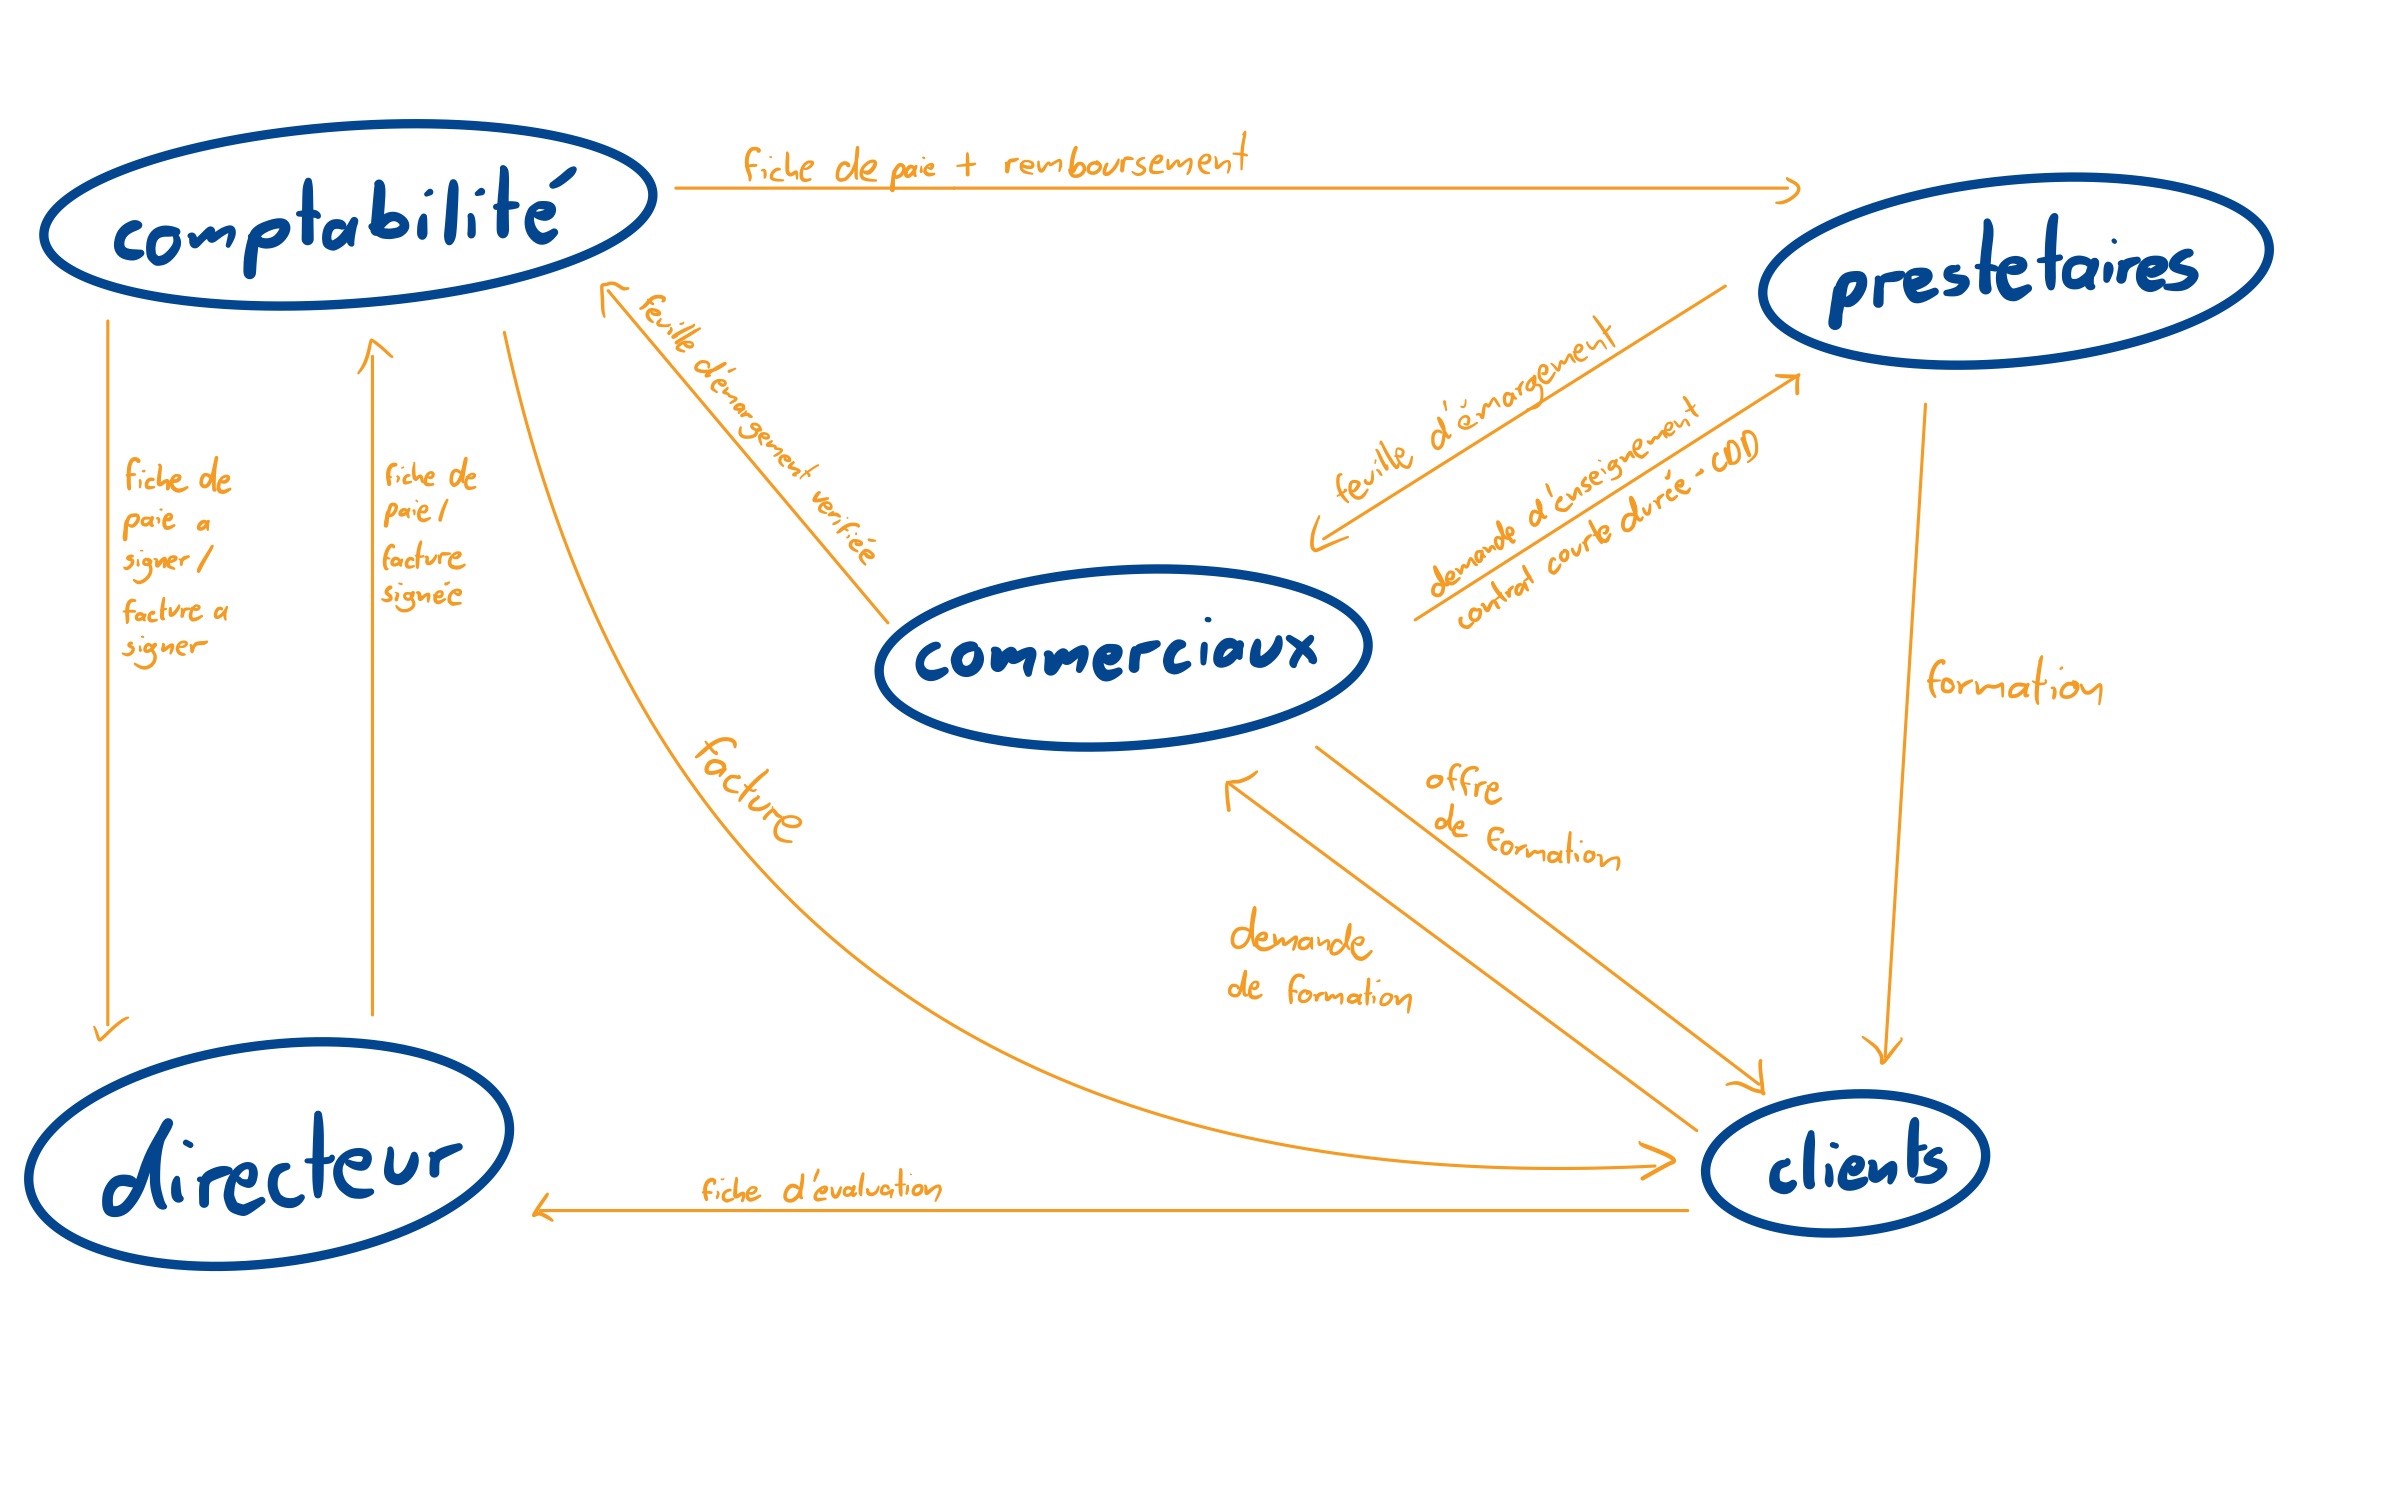 fiche de paie + remboursement
comptabilité
prestetaires
feuille d'émargement vérifiée
feuille d'émargement
demande d'enseignement
contrat courte durée - CDD
fiche de
paie a
signer /
facture a
signer
fiche de
paie /
facture
signée
commerciaux
formation
facture
offre
de formation
demande
de formation
directeur
clients
fiche d'évaluation